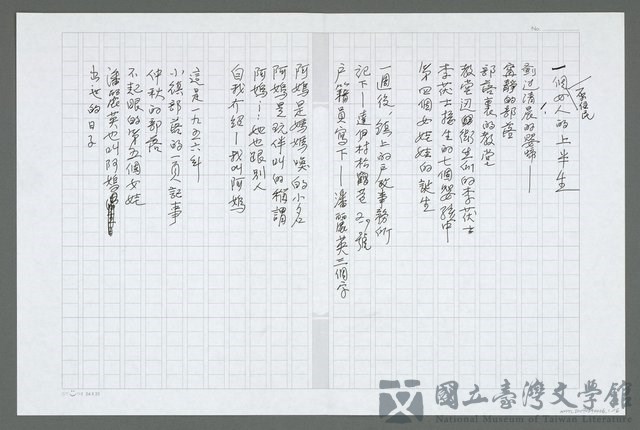 一個女人的上半生
原住民
劃過清晨的聲啼——
寂靜的部落
部落裏的教堂
教堂邊衛生所的李茂士
李茂士接生的七個嬰孩中
第四個女娃娃的誕生
一週後，鎮上的戶政事務所
記下——達伯村松鶴巷20號
戶籍員寫下——潘麗英三個字
阿媽是媽媽喚的小名
阿媽是玩伴叫的稱謂
阿媽……她也跟別人
自我介紹——我叫阿媽
這是一九五六年
小鎮部落的一頁記事
仲秋的部落
不起眼的第五個女娃
潘麗英也叫阿媽
出世的日子
No.
國立臺灣文學館
National Museum of Taiwan Literature